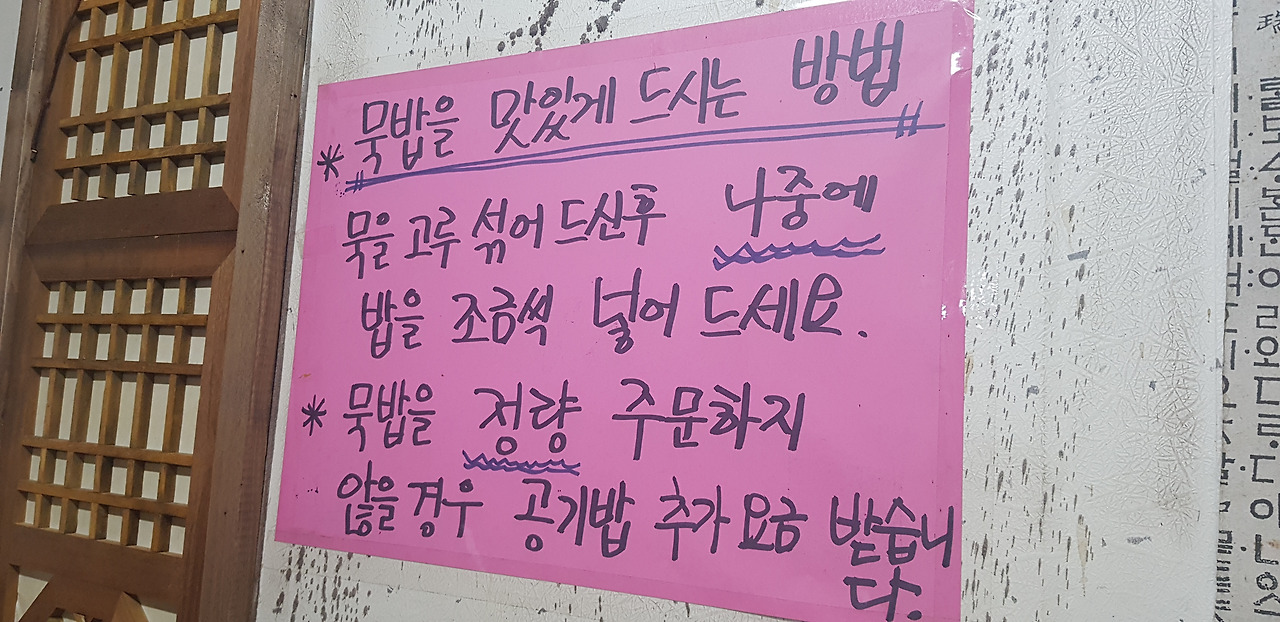 * 묵밥을 맛있게 드시는 방법
묵을 고루 섞어 드신후 나중에
밥을 조금씩 넣어 드세요.
* 묵밥을 정량 주문하지
않을 경우 공기밥 추가 요금 받습니
다.